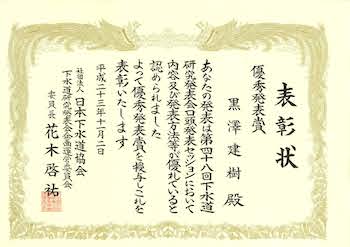 表彰状
優秀発表賞
黒澤建樹殿
あなたの発表は第四十八回下水道
研究発表会口頭発表セッションにおいて
内容及び発表方法等が優れていると
認められました
よって優秀発表賞を授与しこれを
表彰いたします
平成二十三年十一月二日
社団法人日本下水道協会
下水道研究発表会企画運営委員会
委員長 花木啓祐